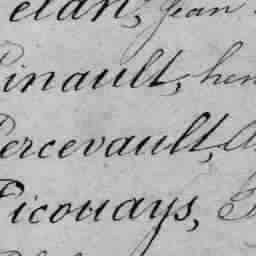 elan, Jean
Pinault, hen
Percevault, A
Picouays,